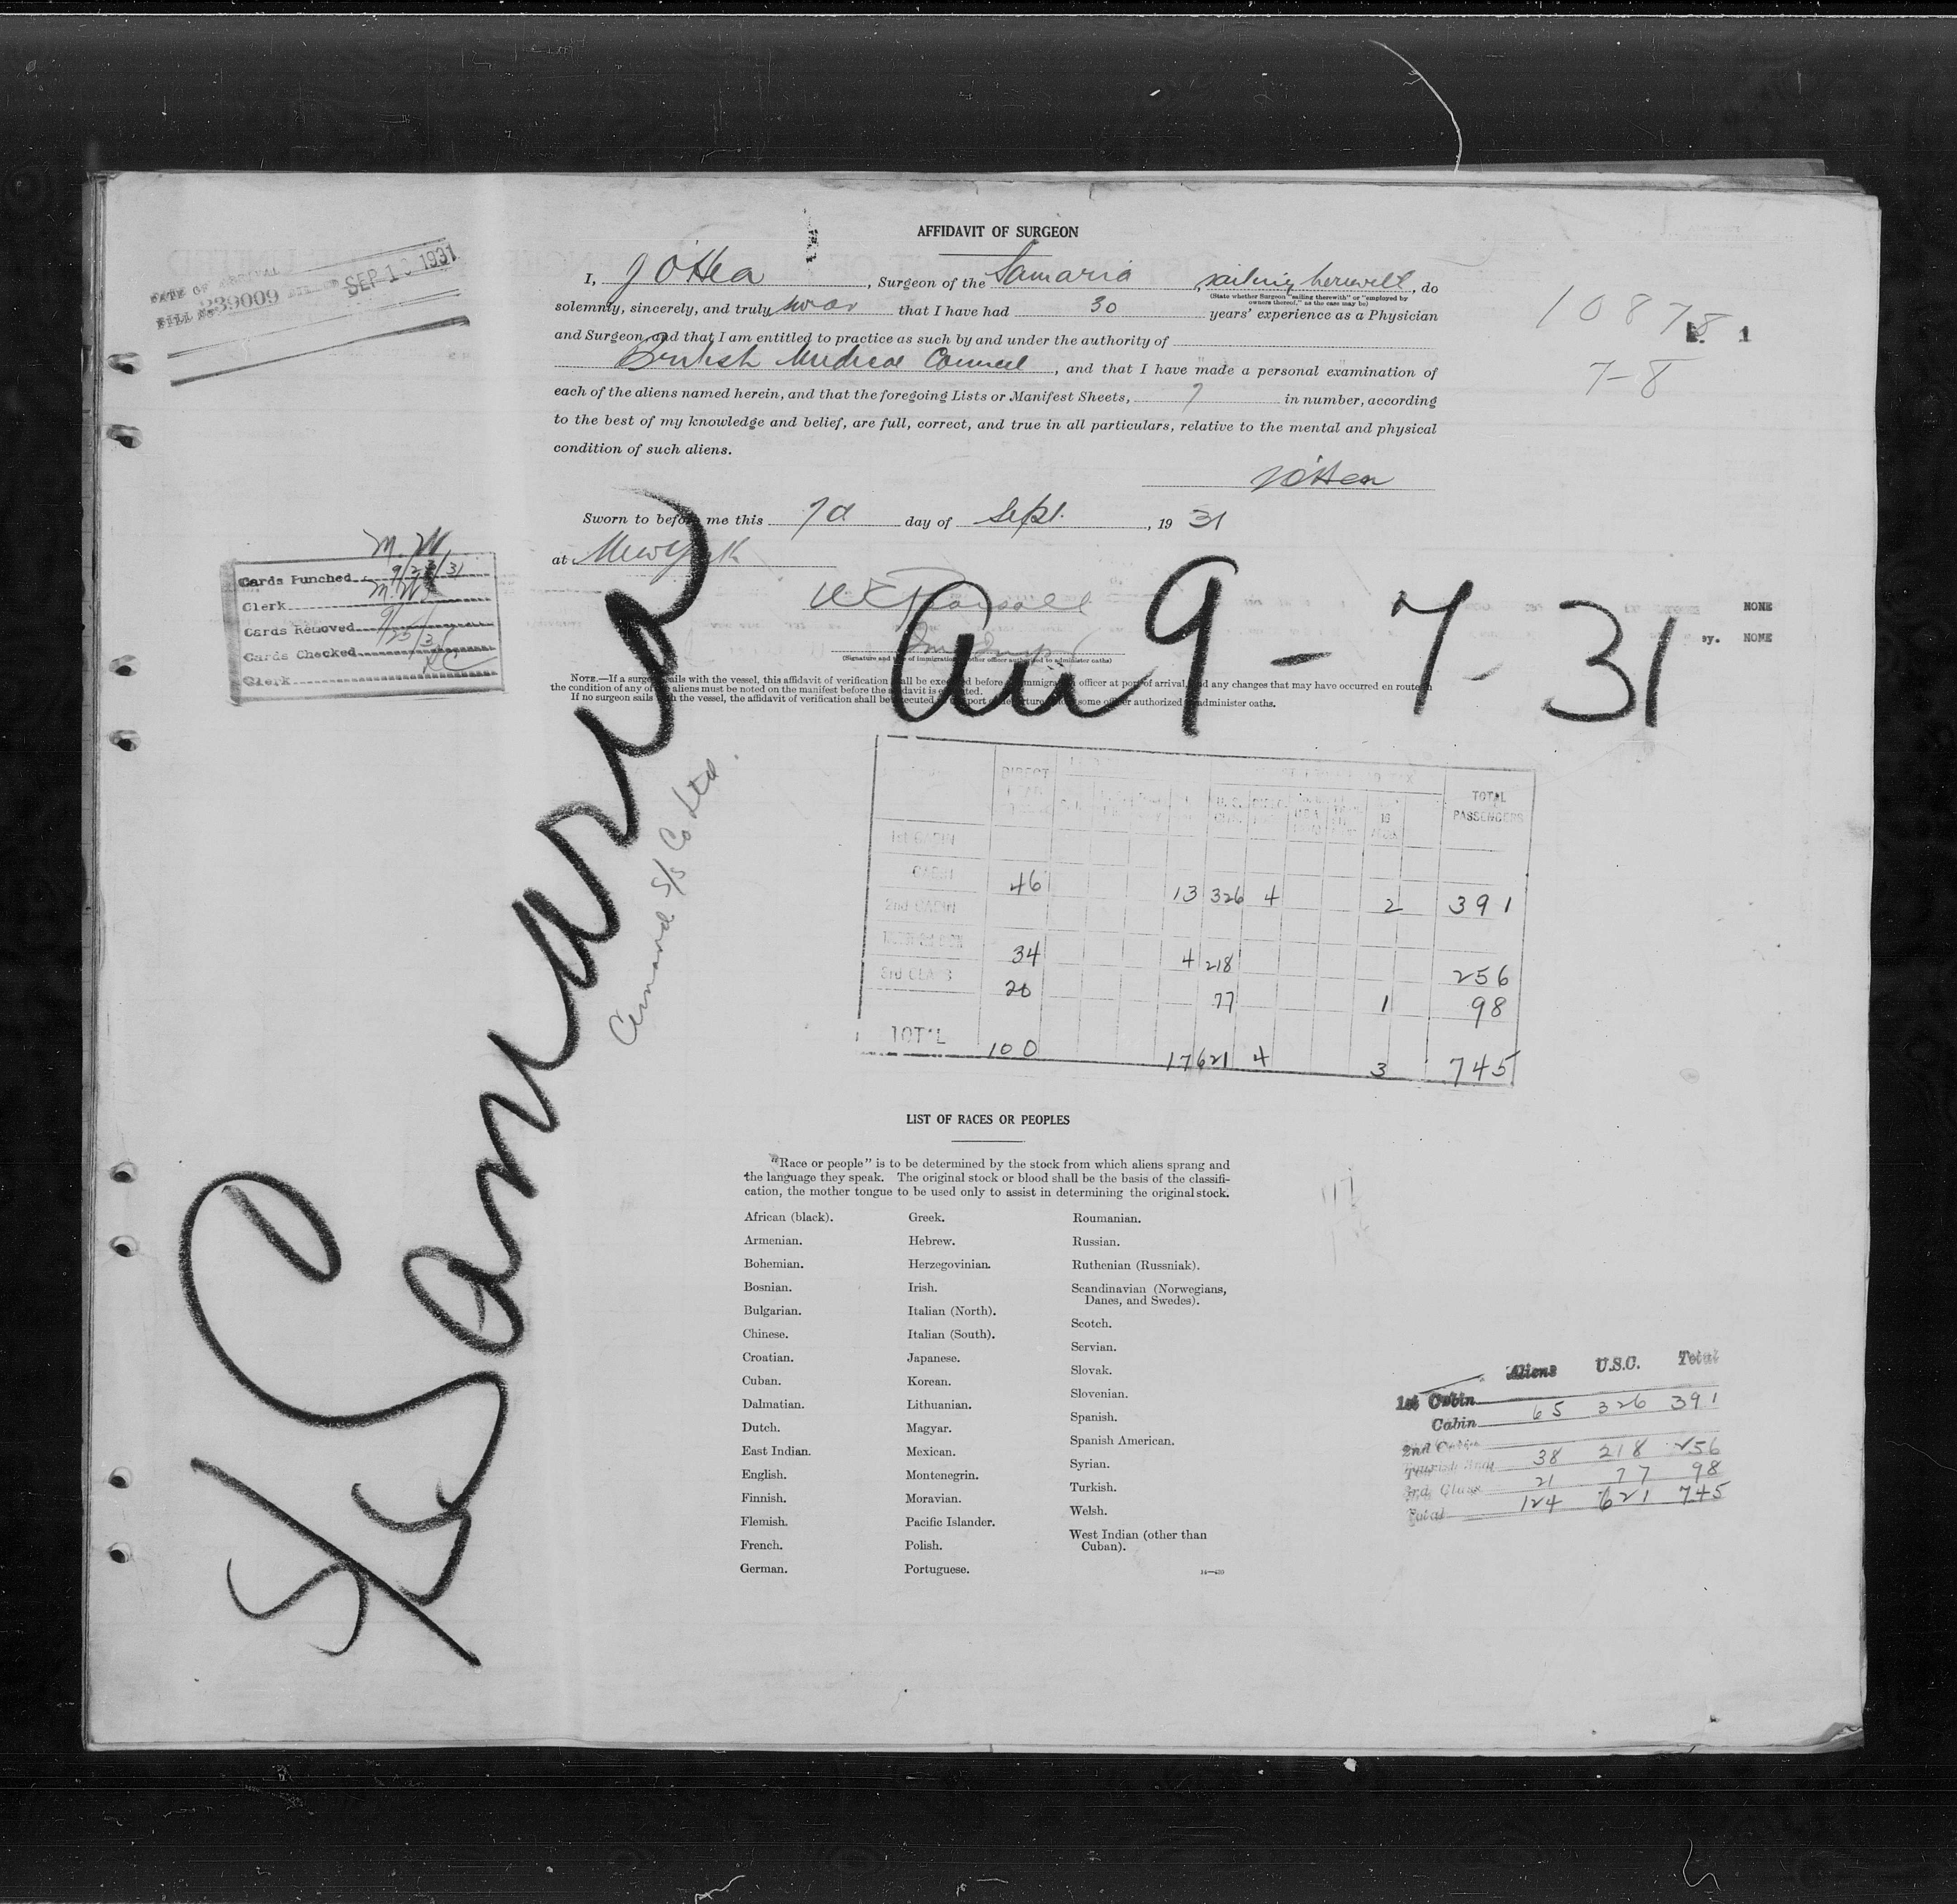 AFFIDAVIT OF SURGEON
I, J O'Hea, Surgeon of the Samaria, sailing herewith, do
(State whether Surgeon "sailing therewith" or "employed by owners thereof," as the case may be)
solemnly, sincerely, and truly swear that I have had 30 years' experience as a Physician
and Surgeon, and that I am entitled to practice as such by and under the authority of
British Medical Council, and that I have made a personal examination of
each of the aliens named herein, and that the foregoing Lists or Manifest Sheets, 7 in number, according
to the best of my knowledge and belief, are full, correct, and true in all particulars, relative to the mental and physical
condition of such aliens.
J O'Hea
Sworn to before me this 7th day of Sept., 19 31
at New York
(Signature and title of immigration or other officer authorized to administer oaths)
NOTE.—If a surgeon sails with the vessel, this affidavit of verification shall be executed before an immigration officer at port of arrival, and any changes that may have occurred en route in
the condition of any of the aliens must be noted on the manifest before the affidavit is executed.
If no surgeon sails with the vessel, the affidavit of verification shall be executed at the port of departure before some officer authorized to administer oaths.
DATE OF ARRIVAL
FILL No 239009 SEP 1 1931
10878
7-8
1
NONE
NONE
M. W.
Cards Punched 9/23/31
Clerk M. W.
Cards Removed 9/25/31
Cards Checked
Clerk RC
S/S Samaria
Cunard S/S Co Ltd.
Arr 9-7-31
DIRECT TOTAL PASSENGERS
1st CABIN
CABIN 46 13 326 4 2 391
2nd CABIN
34 4 218 256
3rd CLASS 20 77 1 98
TOTAL 100 17 621 4 3 745
LIST OF RACES OR PEOPLES
"Race or people" is to be determined by the stock from which aliens sprang and
the language they speak. The original stock or blood shall be the basis of the classifi-
cation, the mother tongue to be used only to assist in determining the original stock.
African (black).
Armenian.
Bohemian.
Bosnian.
Bulgarian.
Chinese.
Croatian.
Cuban.
Dalmatian.
Dutch.
East Indian.
English.
Finnish.
Flemish.
French.
German.
Greek.
Hebrew.
Herzegovinian.
Irish.
Italian (North).
Italian (South).
Japanese.
Korean.
Lithuanian.
Magyar.
Mexican.
Montenegrin.
Moravian.
Pacific Islander.
Polish.
Portuguese.
Roumanian.
Russian.
Ruthenian (Russniak).
Scandinavian (Norwegians,
Danes, and Swedes).
Scotch.
Servian.
Slovak.
Slovenian.
Spanish.
Spanish American.
Syrian.
Turkish.
Welsh.
West Indian (other than
Cuban).
Aliens U.S.C. Total
1st Cabin
Cabin 65 326 391
2nd Cabin
Tourist 38 218 256
3rd Class 21 77 98
Total 124 621 745